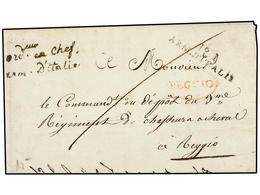 Ord.<sup>eur</sup> en chef
arm. d'Italie
N° 4
ARM. D'ITALIE
REGGIO
A Monsieur
le Commandant du dépôt du 9<sup>me</sup>
Régiment de chasseurs à cheval
à Reggio